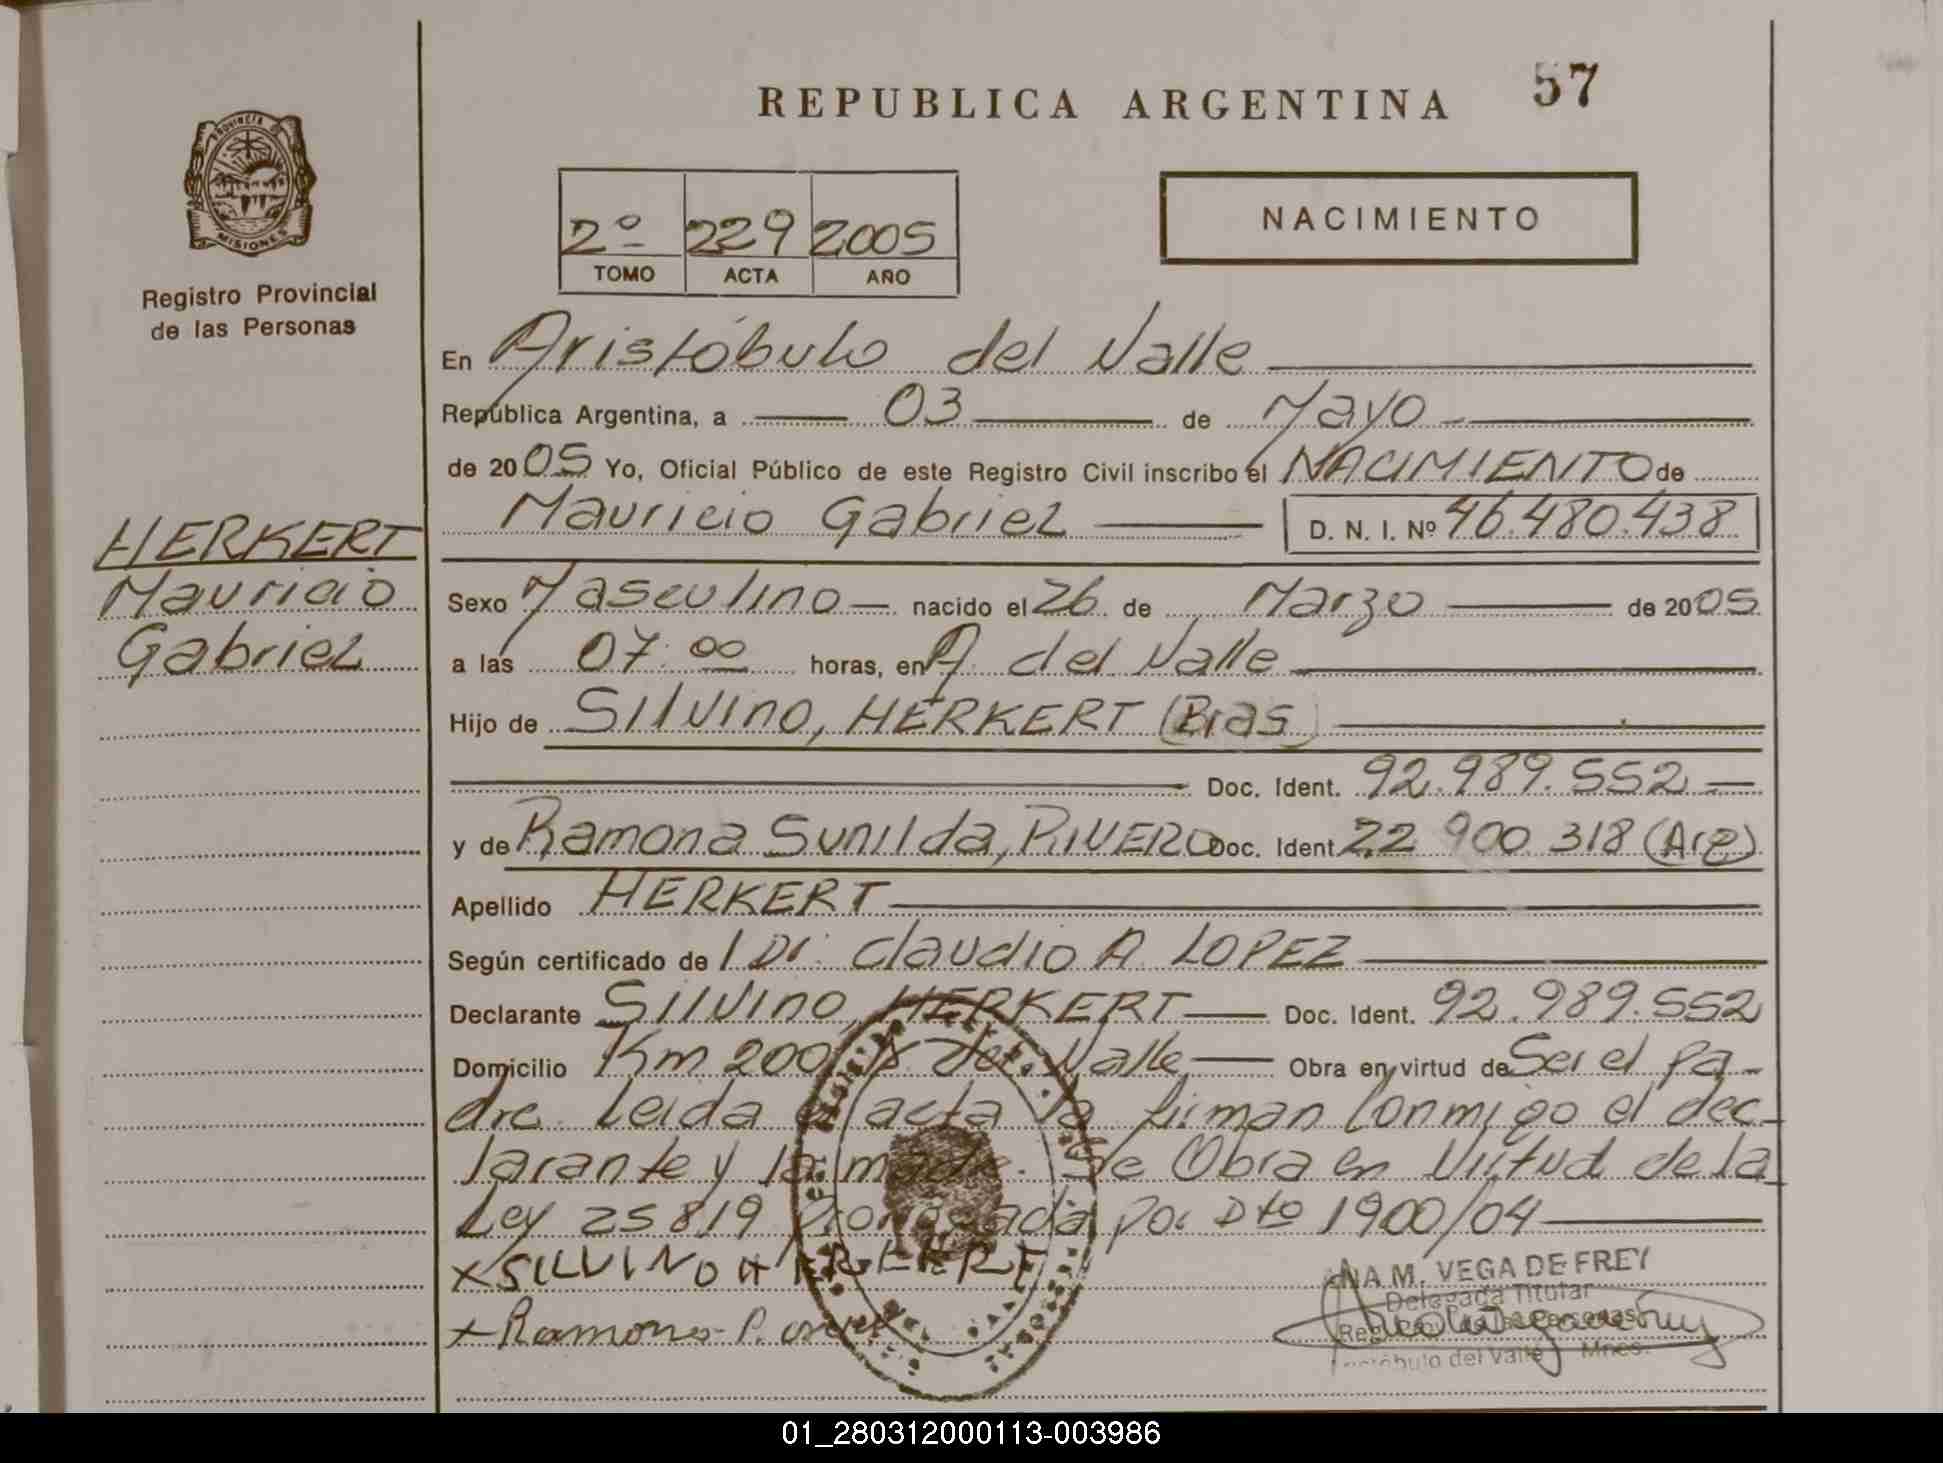 57
REPUBLICA ARGENTINA
PROVINCIA DE
MISIONES
Registro Provincial
de las Personas
2º 229 2005
TOMO ACTA AÑO
NACIMIENTO
En Aristóbulo del Valle
República Argentina, a 03 de Mayo
de 2005 Yo, Oficial Público de este Registro Civil inscribo el NACIMIENTO de
Mauricio Gabriel D. N. I. Nº 46.480.438
HERKERT
Mauricio
Gabriel
Sexo Masculino nacido el 26 de Marzo de 2005
a las 07:00 horas, en A. del Valle
Hijo de Silvino, HERKERT (Bras)
Doc. Ident. 92.989.552
y de Ramona Sunilda, RIVERO Doc. Ident 22 900 318 (Arg)
Apellido HERKERT
Según certificado de Dr. Claudio A LOPEZ
Declarante Silvino, HERKERT Doc. Ident. 92.989.552
Domicilio Km 200 A. del Valle Obra en virtud de Ser el pa-
dre. Leida el acta la firman Conmigo el dec-
larante y la madre. Se Obra en Virtud de la
Ley 25819 Prorrogada por Dto 1900/04
x SILVINO HERKERT
x Ramona
M. VEGA DE FREY
Delegada Titular
Reg. de las Personas
Aristóbulo del Valle Mnes.
01_280312000113-003986